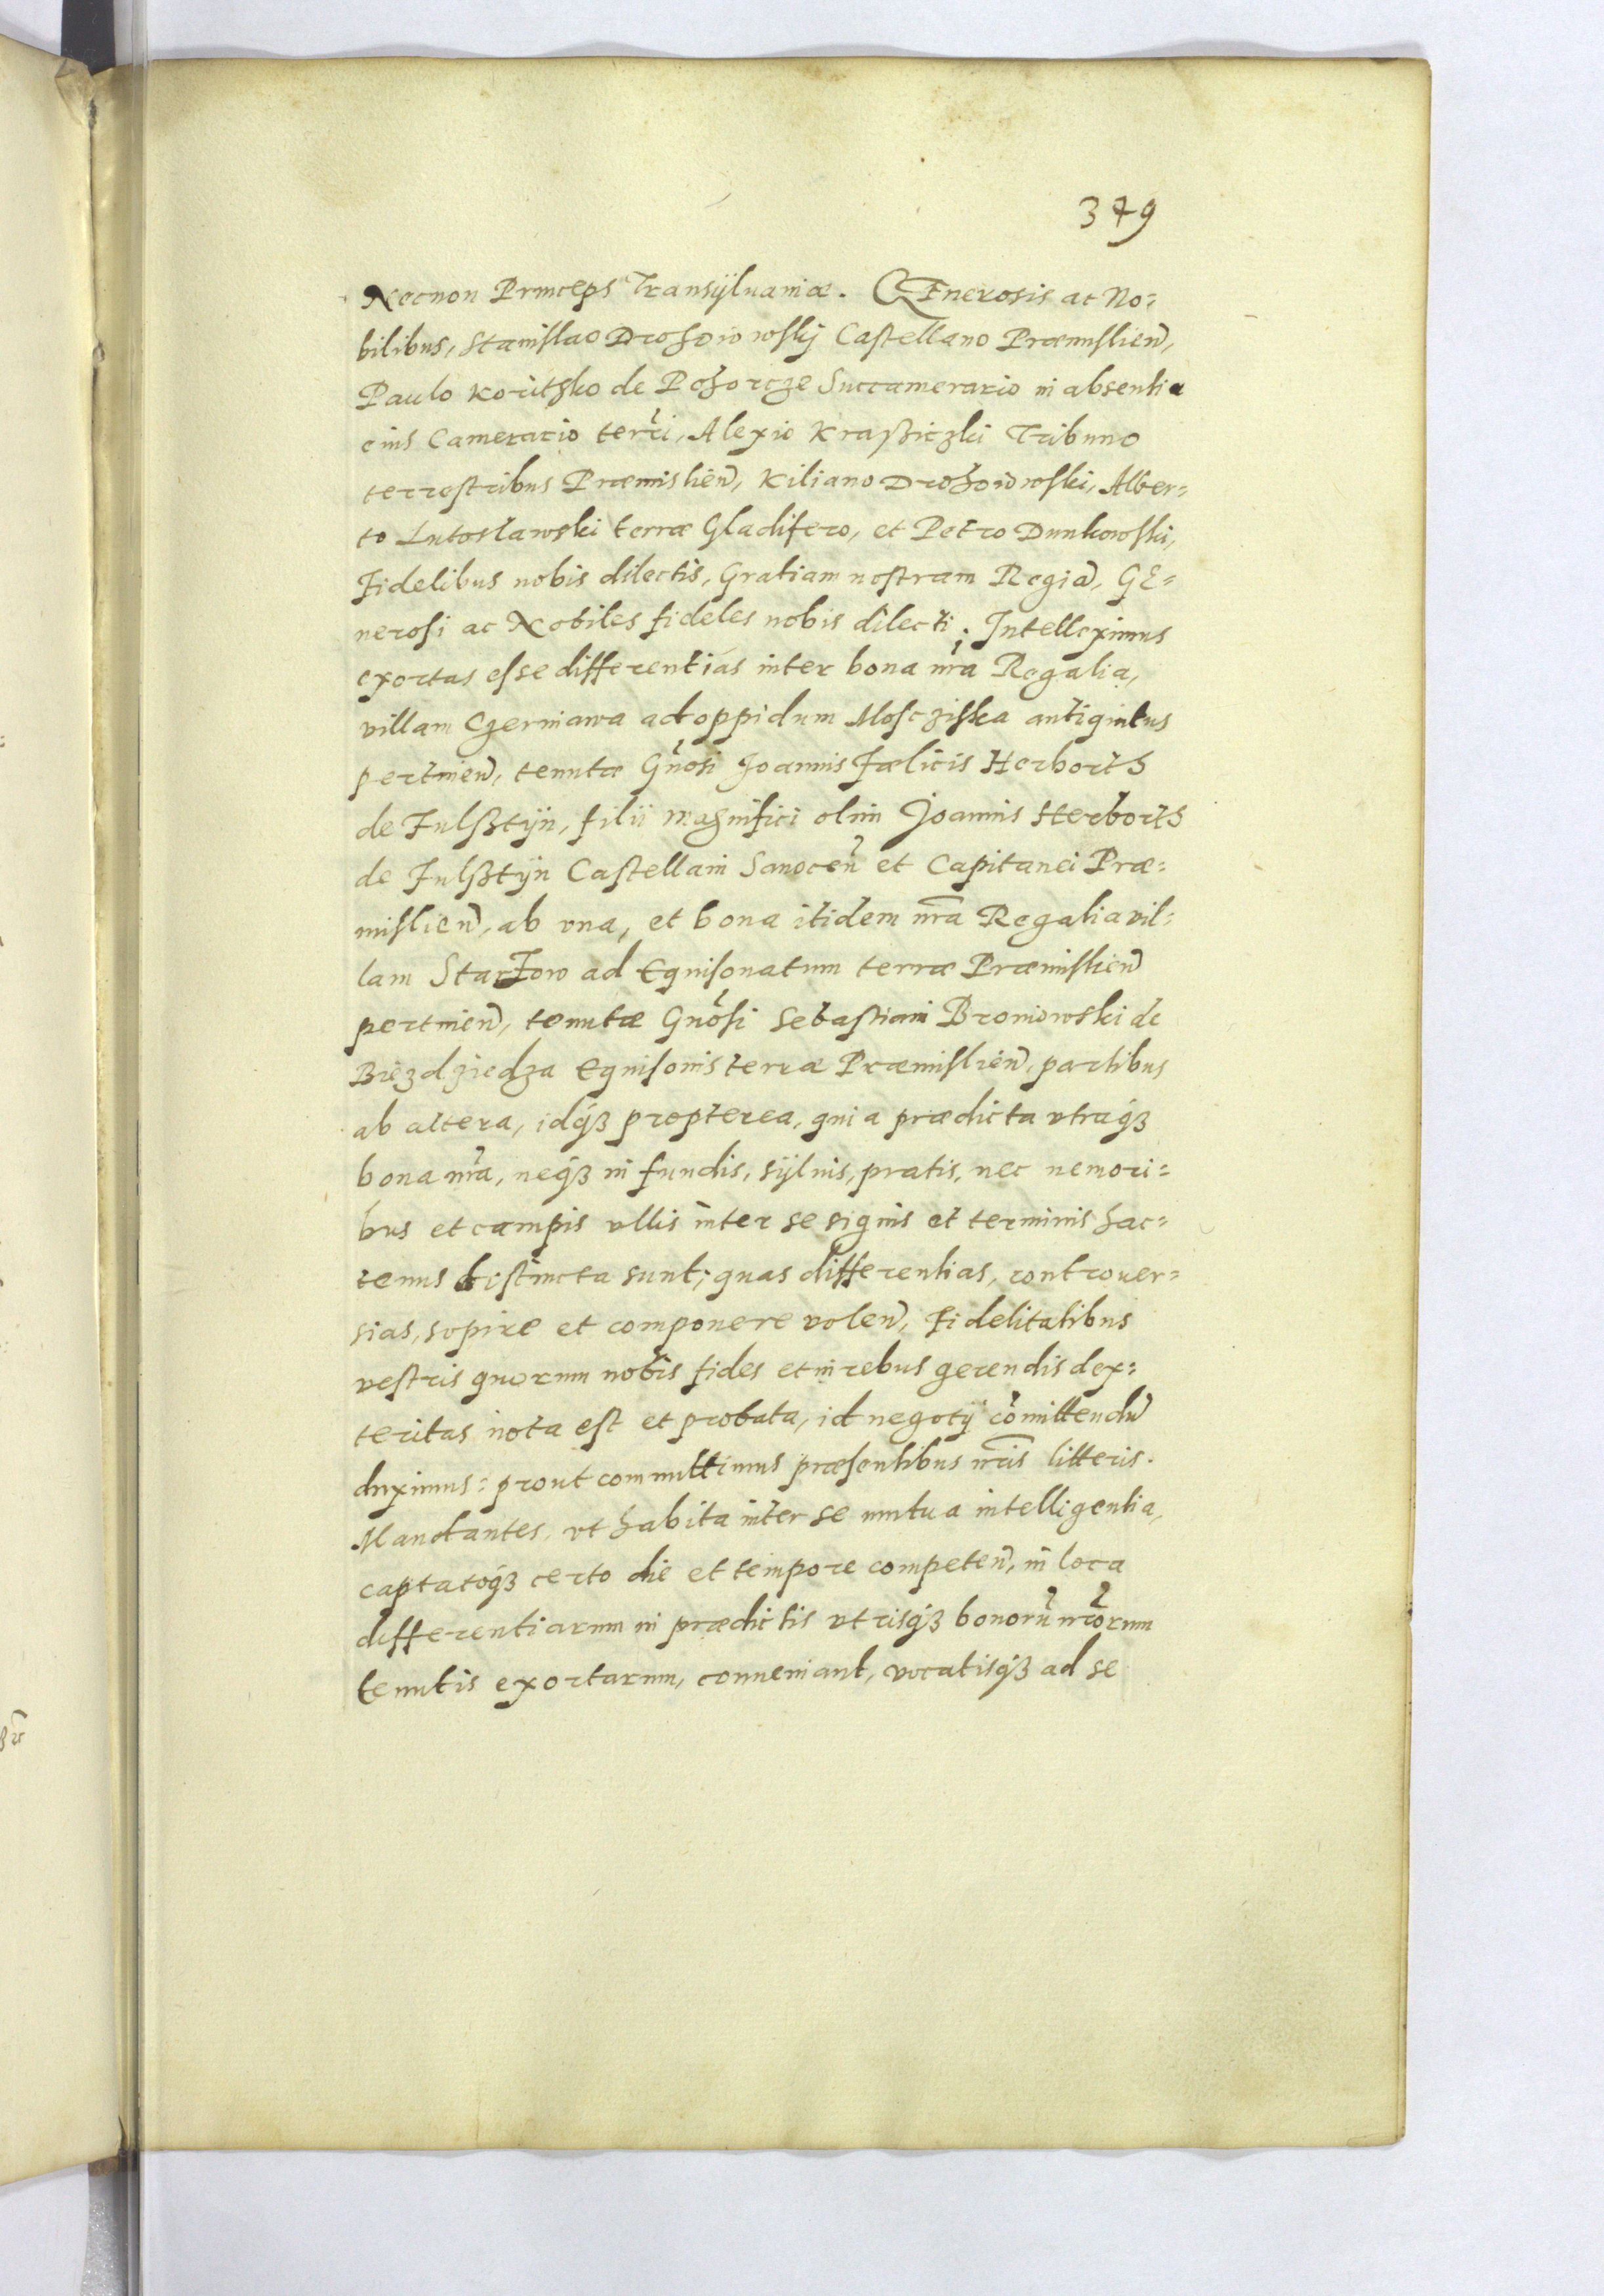 379
Necnon Princeps Transÿluaniæ. GEnerosis ac No=
bilibus, Stanislao Drohoiowskÿ Castellano Præmislien̄,
Paulo Koritħko de Pohorcze Succamerario in absentia
eius Camerario terri, Alexio Krasziczki Tribuno
terrestribus Præmislien̄, Kiliano Drohoiowski, Alber=
to Lutosławski terræ Gladifero, et Petro Dunkowski,
Fidelibus nobis dilectis, Gratiam nostram Regiā, GE=
nerosi ac Nobiles fideles nobis dilecti. Intelleximus
exortas esse differentias inter bona nr̄a Regalia,
villam Czerniawa ad oppidum Mosciska antiquitus
pertinen̄, tenutæ Gn̄osi Joannis Fœlicis Herborth
de Fulsztÿn, filii magnifici olim Joannis Herborth
de Fulsztÿn Castellani Sanocen̄ et Capitanei Præ=
mislien̄, ab vna, et bona itidem nr̄a Regalia vil=
lam Starzow ad Equisonatum terræ Præmislien̄
pertinen̄, tenutæ Gn̄osi Sebastiani Broniowski de
Biezdziedza Equisonis terræ Præmislien̄, partibus
ab altera, idqʒ propterea, quia prædicta vtraqʒ
bona nr̄a, neqʒ in fundis, sÿluis, pratis, nec nemori=
bus et campis vllis inter se signis et terminis hac=
tenus distincta sunt; quas differentias, controuer=
sias, sopire et componere volen̄, Fidelitatibus
vestris quorum nobis fides et in rebus gerendis dex=
teritas nota est et probata, id negotÿ cōmittendū
duximus: prout committimus præsentibus nr̄is litteris.
Mandantes, vt habita inter se mutua intelligentia,
captatoqʒ certo die et tempore competen̄, in loca
differentiarum in prædictis vtrisqʒ bonorū nr̄orum
tenutis exortarum, conueniant, vocatisqʒ ad se